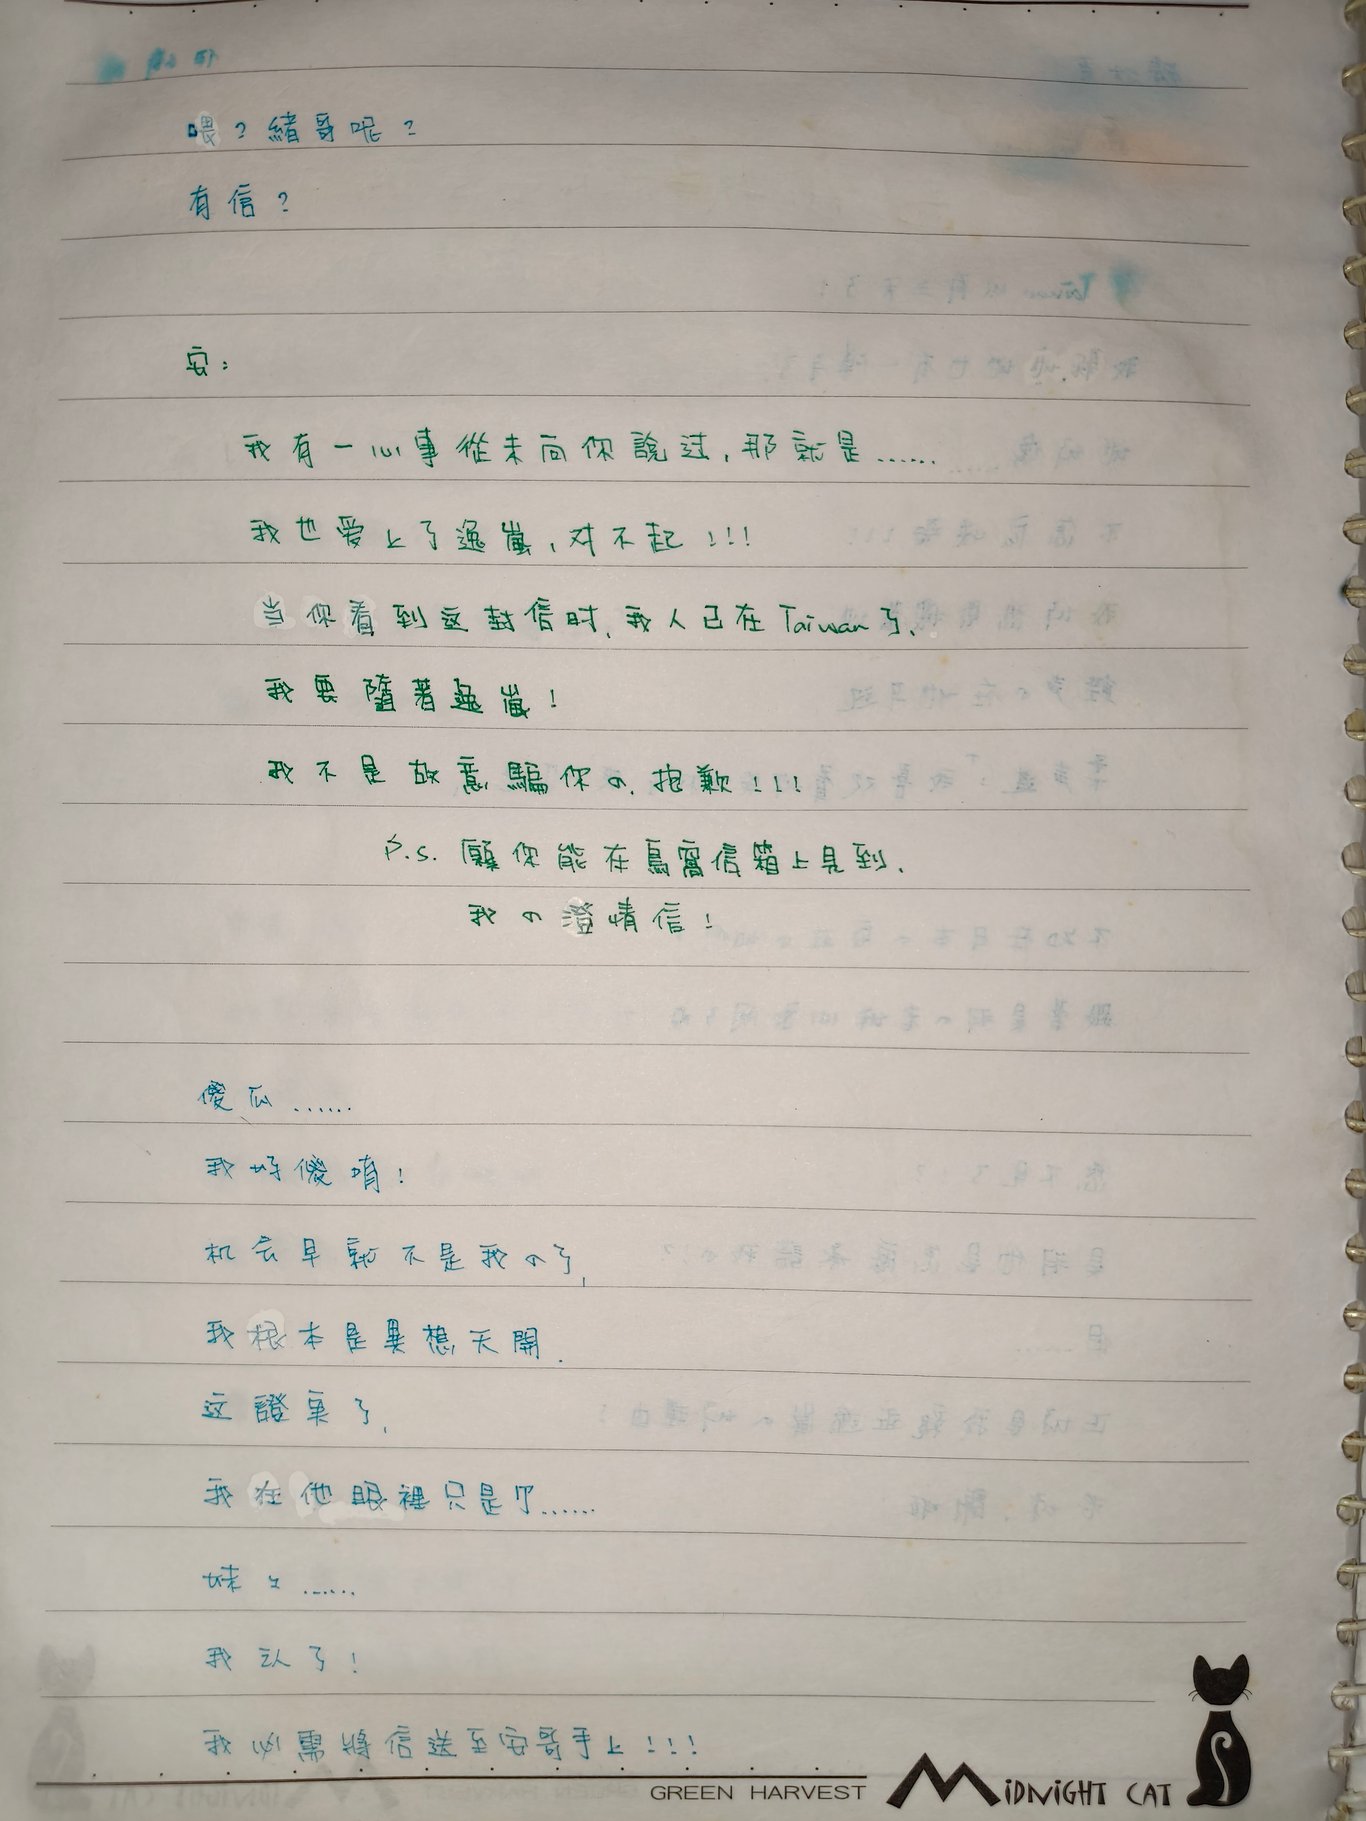 喂？緒哥呢？
有信？
安：
我有一心事從未向你說过，那就是……
我也爱上了逸嵐，对不起！！！
当你看到这封信时，我人已在Taiwan了，
我要隨著逸嵐！
我不是故意騙你の，抱歉！！！
P.S. 願你能在鳥窩信箱上見到，
我の澄情信！
傻瓜……
我好傻唷！
机会早就不是我の了，
我根本是異想天開．
这證実了，
我在他眼裡只是个……
妹々……
我认了！
我必需將信送至安哥手上！！！
GREEN HARVEST MIDNIGHT CAT